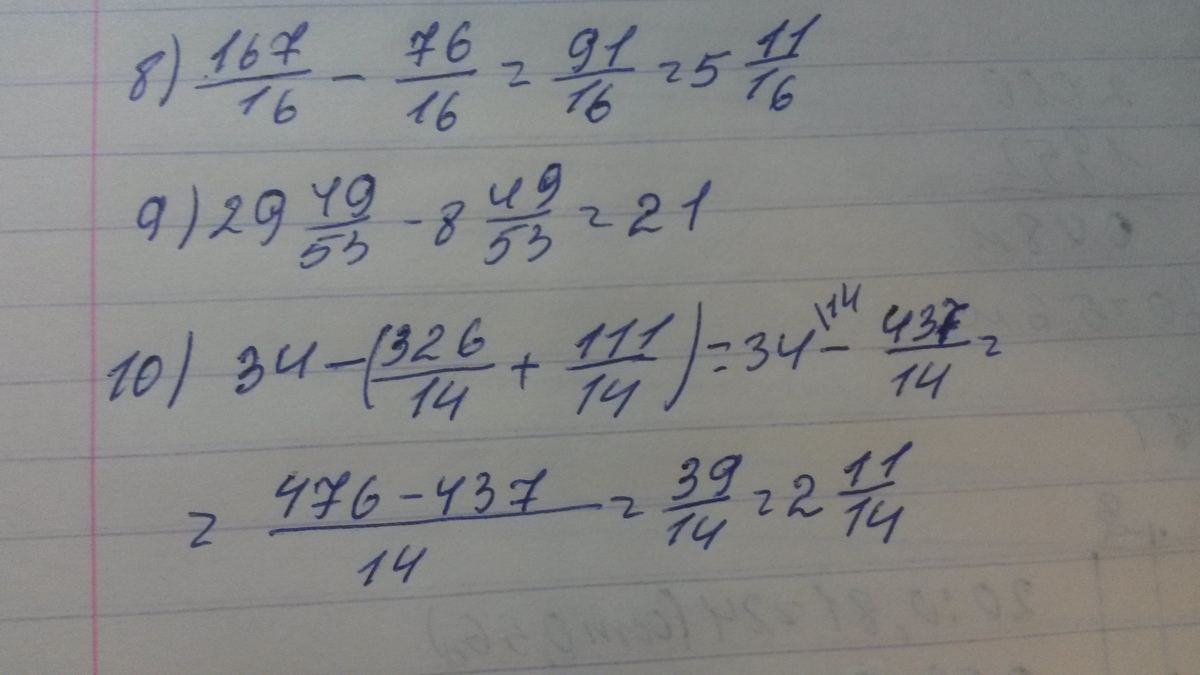 8) 167/16 - 76/16 = 91/16 = 5 11/16
9) 29 49/53 - 8 49/53 = 21
10) 34 - (326/14 + 111/14) = 34\14 - 437/14 =
= 476 - 437/14 = 39/14 = 2 11/14